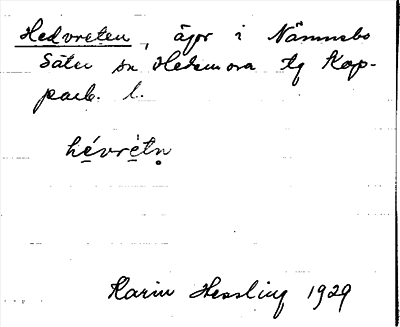 Hedvreten, ägor i Nämnsbo
Säter sn Hedemora tg Kop-
parb. l.
hévrètn̥
Karin Hessling 1929